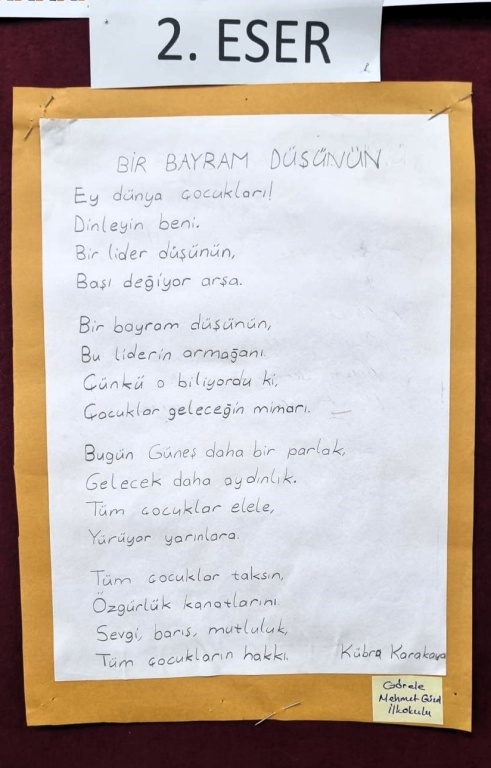 2. ESER
BİR BAYRAM DÜŞÜNÜN
Ey dünya çocukları!
Dinleyin beni.
Bir lider düşünün,
Başı değiyor arşa.
Bir bayram düşünün,
Bu liderin armağanı.
Çünkü o biliyordu ki,
Çocuklar geleceğin mimarı.
Bugün Güneş daha bir parlak,
Gelecek daha aydınlık.
Tüm çocuklar elele,
Yürüyor yarınlara.
Tüm çocuklar taksın,
Özgürlük kanatlarını.
Sevgi, barış, mutluluk,
Tüm çocukların hakkı.
Kübra Karakaya
Görele
Mehmet Gürel
İlkokulu